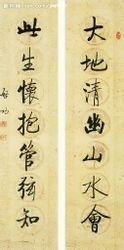 大地清幽山水會
此生懷抱管絃知
启功